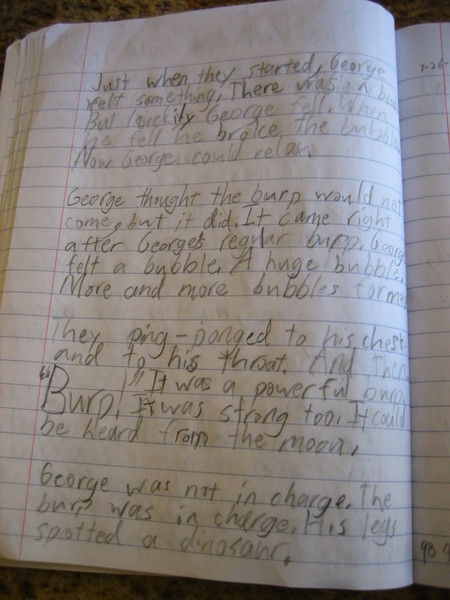 Just when they started, George
felt something, There was a bub
But luckily George fell. When
he fell he broke the bubble
Now George could relax.
George thought the burp would not
come, but it did. It came right
after George's regular burp. George
felt a bubble. A huge bubble.
More and more bubbles formed
They ping-ponged to his chest
and to his throat. And then
"Burp!" It was a powerful burp.
It was strong too. It could
be heard from the moon.
George was not in charge. The
burp was in charge. His legs
spotted a dinosaur.
7-26-